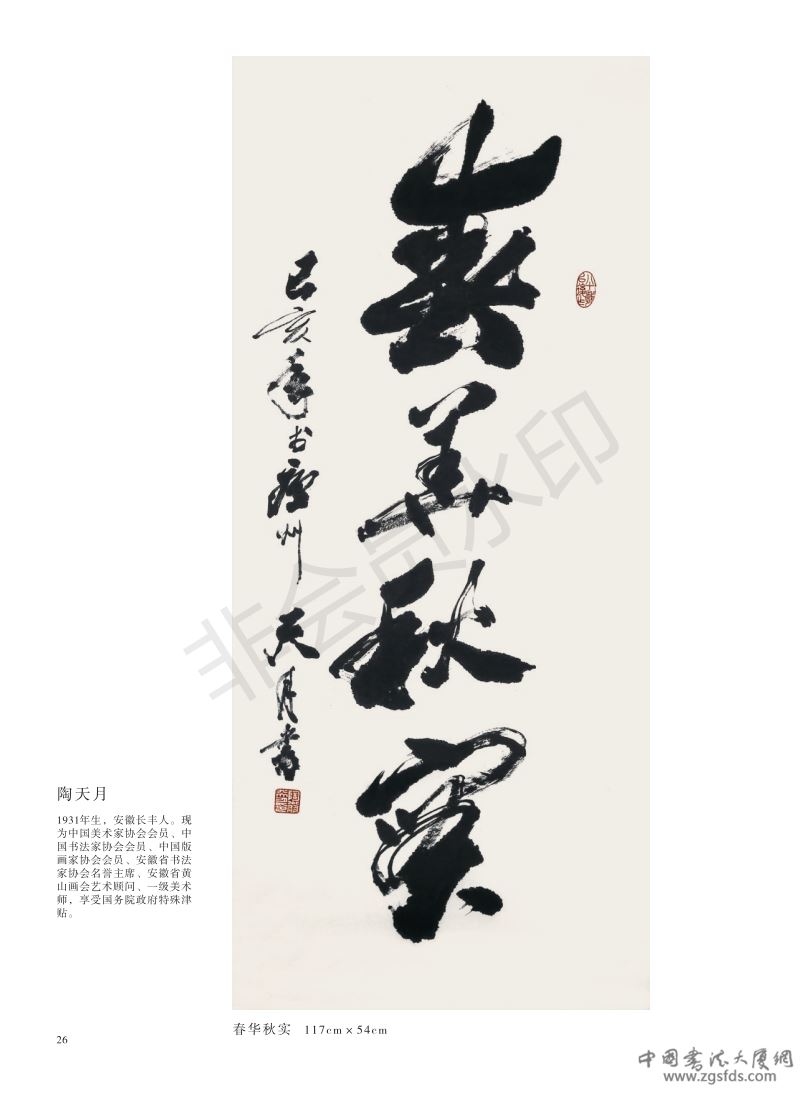 春華秋實
己亥年书於廬州
天月書
陶天月
1931年生，安徽长丰人。现
为中国美术家协会会员、中
国书法家协会会员、中国版
画家协会会员、安徽省书法
家协会名誉主席、安徽省黄
山画会艺术顾问、一级美术
师，享受国务院政府特殊津
贴。
春华秋实 117cm×54cm
26
非会员水印
中国书法大厦網
www.zgsfds.com